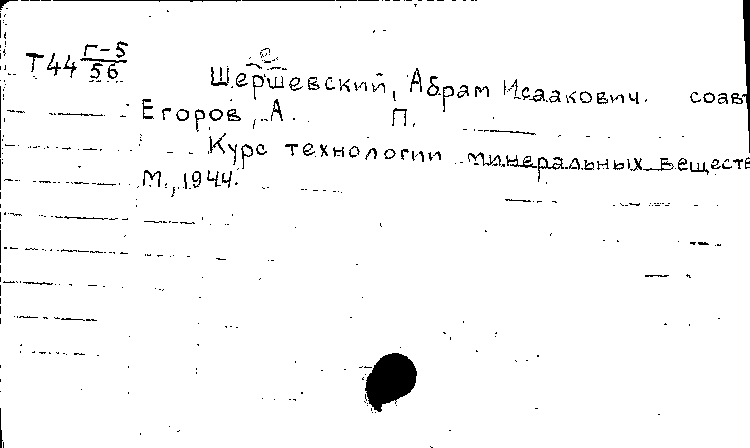 Т44 Г-5/56
Шершевский, Абрам Исаакович. соавт
Егоров, А. П.
Курс технологии минеральных веществ
М., 1944.